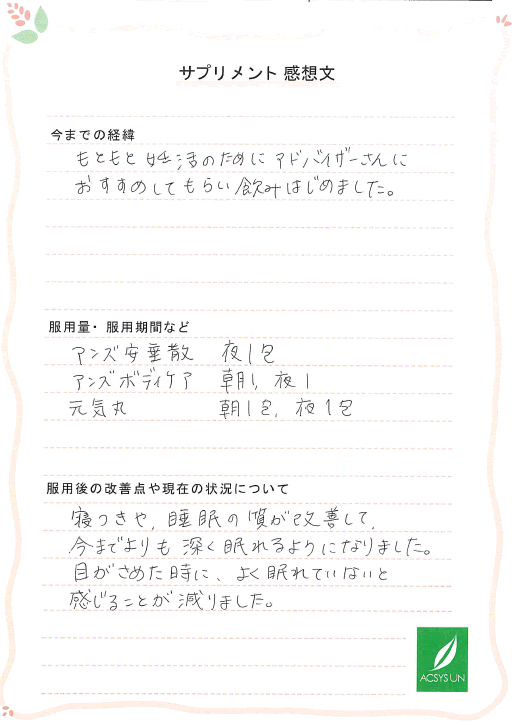 サプリメント 感想文
今までの経緯
もともと妊活のためにアドバイザーさんに
おすすめしてもらい飲みはじめました。
服用量・服用期間など
アンズ安垂散 夜1包
アンズボディケア 朝1, 夜1
元気丸 朝1包, 夜1包
服用後の改善点や現在の状況について
寝つきや, 睡眠の質が改善して,
今までよりも深く眠れるようになりました。
目がさめた時に、よく眠れていないと
感じることが減りました。
ACSYSUN